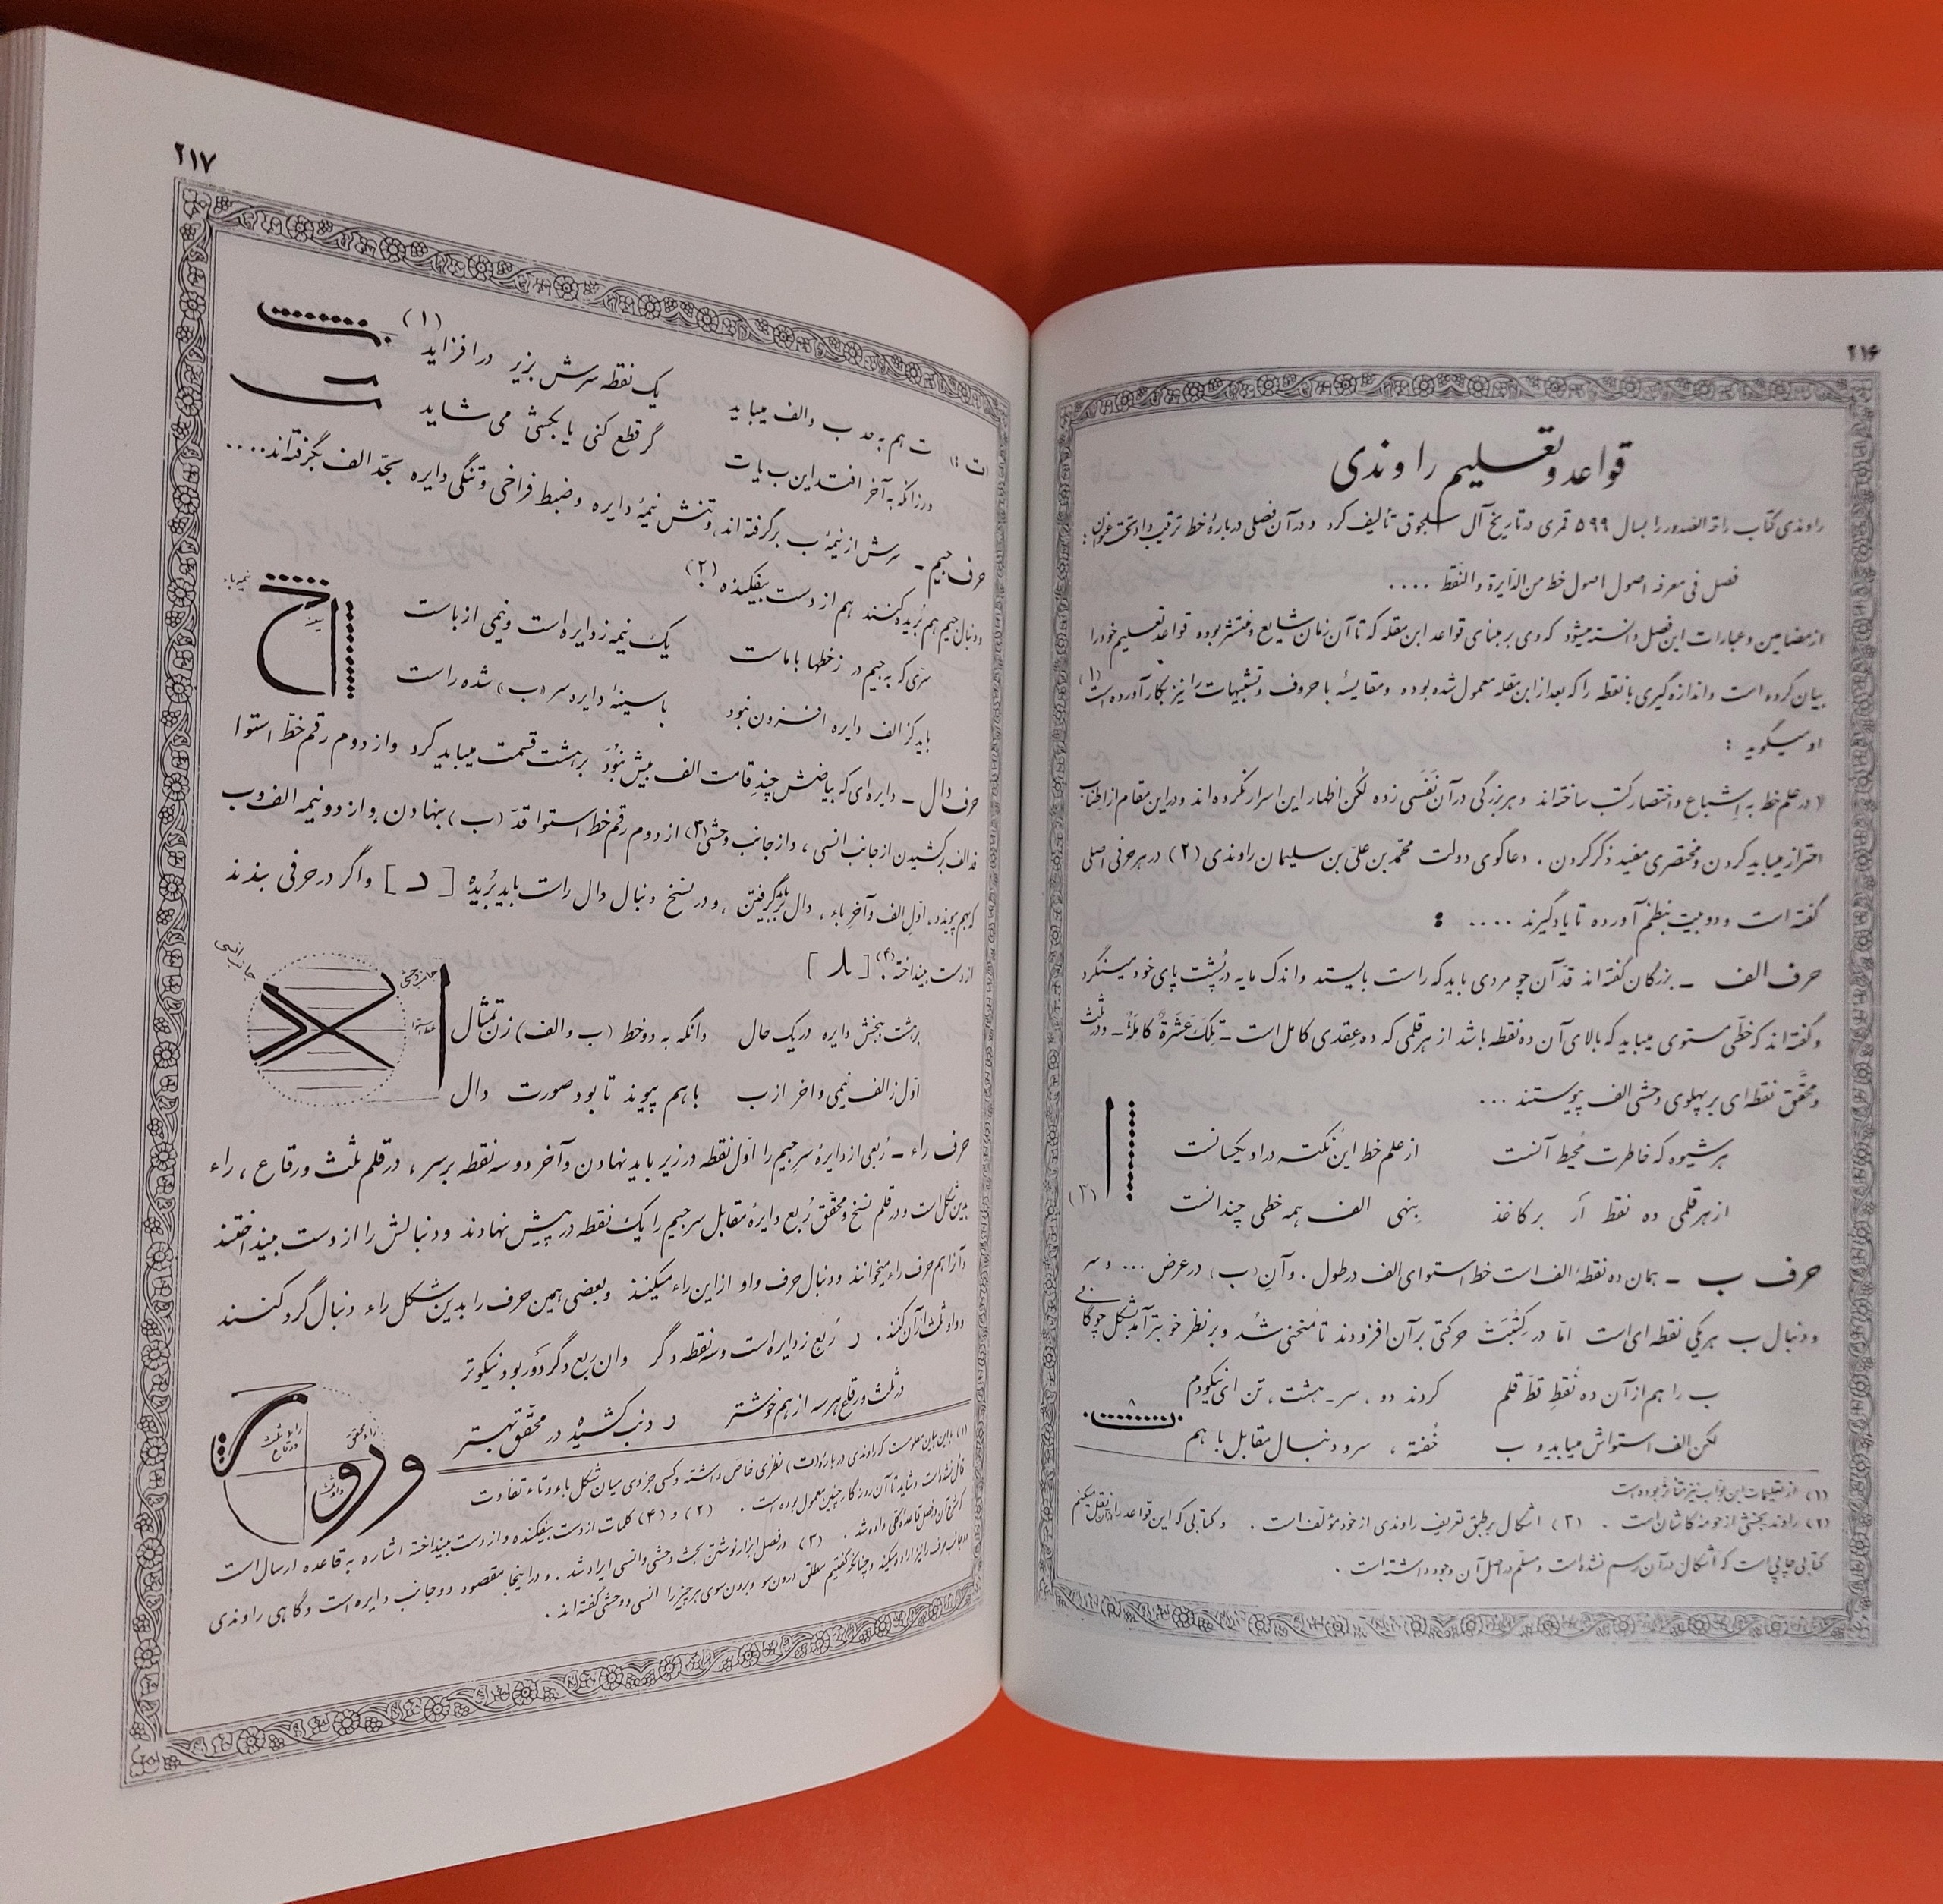 ۲۱۶
قواعد و تعلیم راوندی
راوندی کتاب راحة الصدور را بسال ۵۹۹ قمری در تاریخ آل سلجوق تألیف کرد و در آن فصلی دربارهٔ خط ترتیب داد تحت عنوان :
فصل فی معرفه اصول خط من الدّایرة والنقط ....
از مضامین و عبارات این فصل دانسته میشود که وی بر مبنای قواعد ابن مقله که تا آن زمان شایع و منتشر بوده قواعد تعلیم خود را
بیان کرده است و اندازه‌گیری با نقطه را که بعد از ابن مقله معمول شده بوده و مقایسهٔ با حروف و تشبیهات را نیز بکار آورده است (۱)
او میگوید :
« در علم خط به اِشباع و اختصار کتب ساخته‌اند و هر بزرگی در آن نَفَسی زده لکن اظهار این اسرار نکرده‌اند و در این مقام از اطناب
احتراز میباید کردن و مختصری مفید ذکر کردن . دعاگوی دولت محمّد بن علی بن سلیمان راوندی (۲) در هر حرفی اصلی
گفته است و دو بیت بنظم آورده تا یاد گیرند .... :
حرف الف ـ بزرگان گفته‌اند قدّ آن چو مردی باید که راست بایستد و اندک مایه در پُشت پای خود مینگرد
و گفته‌اند که خطّی مستوی میباید که بالای آن ده نقطه باشد از هر قلمی که ده عِقدی کامل است ـ تِلکَ عَشَرَةٌ کامِلَةٌ ـ و در ثلث
و محقّق نقطه‌ای بر پهلوی وحشی الف پیوستند ...
هر شیوه که خاطرت مُحیط آنست از علم خط این نکته در او یکسانست
از هر قلمی ده نقط اَر بر کاغذ بِنهی الف همه خطی چندانست
(۳)
حرف ب ـ همان ده نقطهٔ الف است خط استوای الف در طول . و آنِ (ب) در عرض ... و سر
و دنبال ب هر یکی نقطه‌ای است امّا در کِتبَت حرکتی بر آن افزودند تا مُنحنی شد و بر نظر خوبتر آمد بشکل چوگانی
ب را هم از آن ده نُقطِ قطّ قلم کردند دو ، سر ـ هشت ، تن ای نیکودم
لکن الف استواش میباید و ب خُفته ، سر و دنبال مقابل با هم
۸
(۱) از تعلیمات ابن بوّاب نیز متأثر بوده است
(۲) راوند بخشی از حومهٔ کاشان است . (۳) اشکال بر طبق تعریف راوندی از خود مؤلف است . و کتابی که این قواعد را از آن نقل میکنم
کتابی چاپی است که اشکال در آن رسم نشده است و مسلّم در اصل آن وجود داشته است .
۲۱۷
ت هم به حد ب و الف میباید یک نقطه سرش بزیر در افزاید (۱)
ور زانکه به آخر افتد این ب یا ت گر قطع کنی یا بکشی می شاید
حرف جیم ـ سرش از نیمهٔ ب برگرفته‌اند و تنش نیمهٔ دایره و ضبط فراخی و تنگی دایره بحدّ الف بگرفته‌اند ....
و دنبال جیم هم بُریده کنند هم از دست بیفکنده (۲)
سرّی که به جیم در ز خطها با ماست یک نیمه ز دایره است و نیمی از باست
باید کز الف دایره افزون نبود با سینهٔ دایره سر (ب) شده راست
نیمه با
سینه
حرف دال ـ دایره‌ای که بیاضش چندِ قامت الف بیش نبُوَد بر هشت قسمت میباید کرد و از دوم رقم خطّ استوا
قد الف برکشیدن از جانب انسی ، و از جانب وحشی (۳) از دوم رقم خط استوا قدّ (ب) بنهادن و از دو نیمه الف و ب
که بهم پیوندد ، اوّل الف و آخر باء ، دال برگرفتن ، و در نسخ دنبال دال راست باید بُریده [ د ] و اگر در حرفی بندند
از دست بینداخته (۴) [ ]
جانب انسی
جانب وحشی
خط استوا
بر هشت ببخش دایره در یک حال وانگه به دو خط (ب و الف) زن تمثال
اوّل ز الف نیمی و آخر از ب با هم پیوند تا بود صورت دال
حرف راء ـ رُبعی از دایرهٔ سر جیم را اوّل نقطه در زیر باید نهادن و آخر دو سه نقطه بر سر ، در قلم ثلث و رقاع ، راء
بدین شکل است و در قلم نسخ و محقّق رُبع دایرهٔ مقابل سر جیم را یک نقطه در پیش نهادند و دنبالش را از دست بینداختند
و آنرا هم حرف راء میخوانند و دنبال حرف واو از این راء میکنند و بعضی همین حرف را بدین شکل راء دنبال گرد کنند
و واو ثلث از آن کنند .
ر رُبع ز دایره است و سه نقطه دگر وان ربع دگر دَوَر بود نیکوتر
در ثلث و رقاع هر سه از هم خوشتر ر دنب کشیده در محقّق بهتر
راء ثلث و رقاع
راء محقق
واو ثلث
(۱) با این بیان معلومست که راوندی دربارهٔ (ت) نظری خاص داشته و کسی جز وی میان شکل باء و تاء تفاوت
قائل نشده است و شاید تا آن روزگار چنین معمول بوده است . (۲) و (۴) کلمات از دست بیفکنده و از دست بینداخته اشاره به قاعده ارسال است
(۳) در فصل ابزار نوشتن بحث وحشی و انسی ایراد شد . و در اینجا مقصود دو جانب دایره است و گاهی راوندی
سوی هر چیز را انسی و وحشی گفته‌اند .